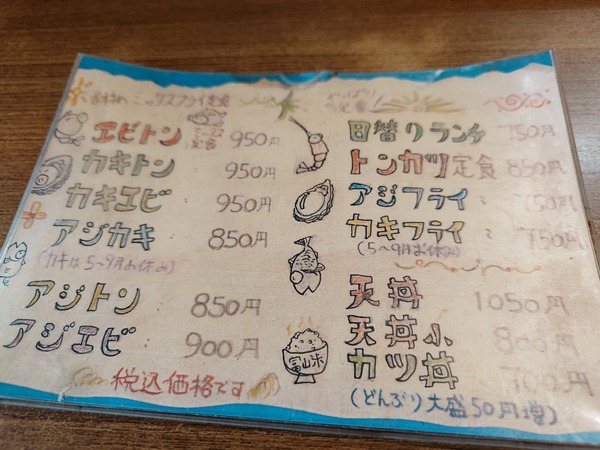 ミックスフライ定食
エビトン 950円
カキトン 950円
カキエビ 950円
アジカキ 850円
(カキは5〜9月お休み)
アジトン 850円
アジエビ 900円
税込価格です
日替りランチ 750円
トンカツ定食 850円
アジフライ
カキフライ 750円
(5〜9月お休み)
天丼 1050円
天丼小 800円
カツ丼 700円
(どんぶり大盛50円増)
富山米